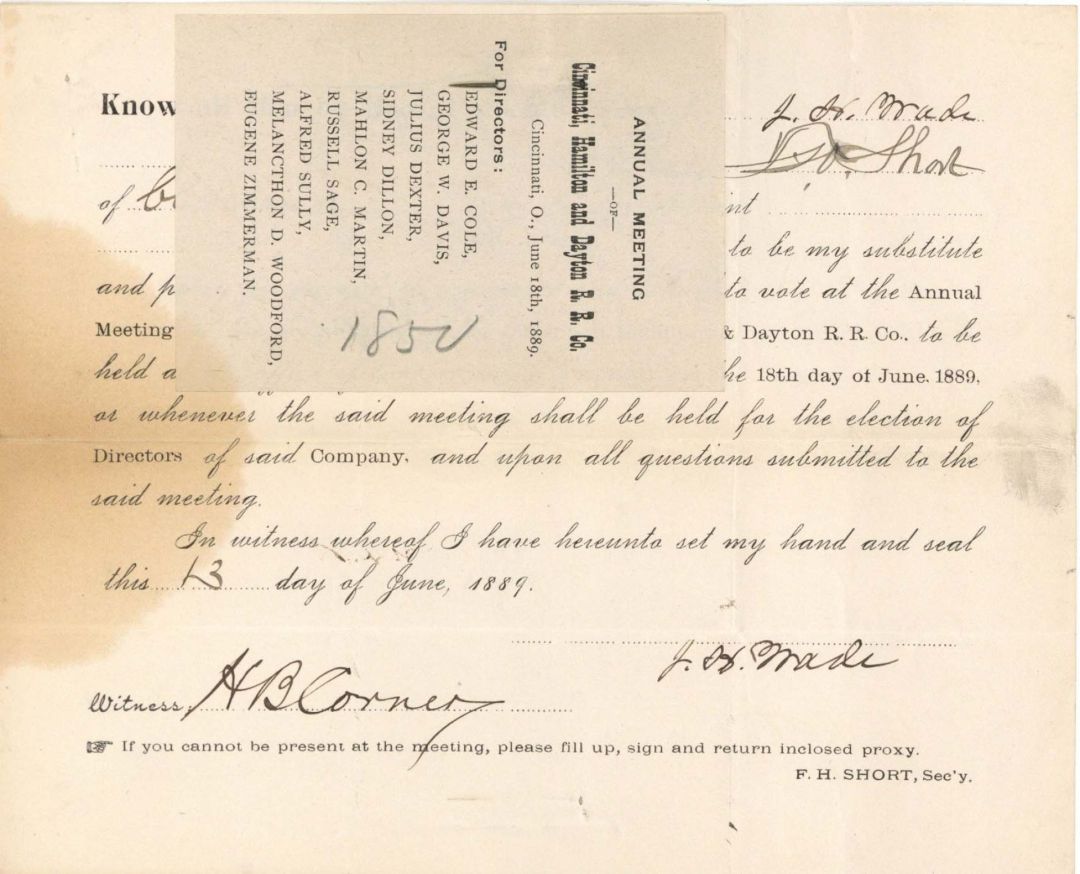 Know
J. H. Wade
Short
of
nt
to be my substitute
and p
to vote at the Annual
Meeting
& Dayton R. R. Co., to be
held a
he 18th day of June, 1889,
or whenever the said meeting shall be held for the election of
Directors of said Company, and upon all questions submitted to the
said meeting.
In witness whereof I have hereunto set my hand and seal
this 13 day of June, 1889.
J. H. Wade
Witness, H B Corner
☞ If you cannot be present at the meeting, please fill up, sign and return inclosed proxy.
F. H. SHORT, Sec'y.
ANNUAL MEETING
—OF—
Cincinnati, Hamilton and Dayton R. R. Co.
Cincinnati, O., June 18th, 1889.
For Directors:
EDWARD E. COLE,
GEORGE W. DAVIS,
JULIUS DEXTER,
SIDNEY DILLON,
MAHLON C. MARTIN,
RUSSELL SAGE,
ALFRED SULLY,
MELANCTHON D. WOODFORD,
EUGENE ZIMMERMAN.